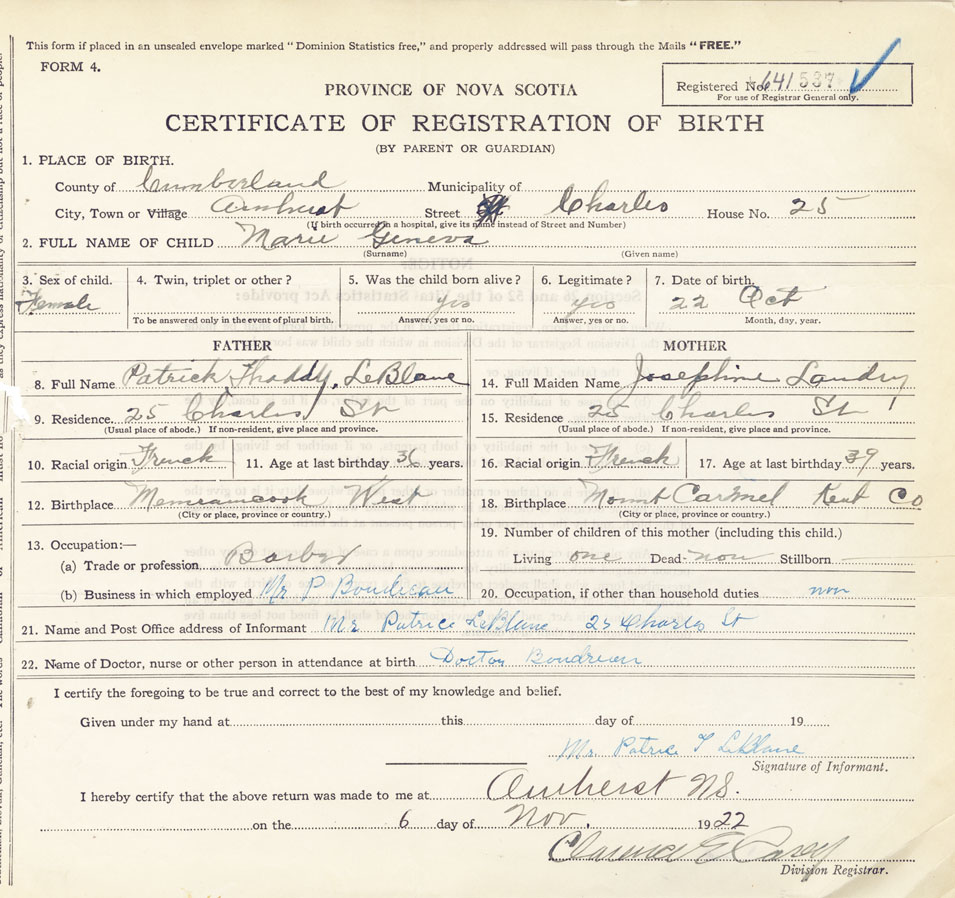 This form if placed in an unsealed envelope marked "Dominion Statistics free," and properly addressed will pass through the Mails "FREE."
FORM 4.
Registered No. 641587
For use of Registrar General only.
PROVINCE OF NOVA SCOTIA
CERTIFICATE OF REGISTRATION OF BIRTH
(BY PARENT OR GUARDIAN)
1. PLACE OF BIRTH.
County of Cumberland Municipality of
City, Town or Village Amherst Street Charles House No. 25
(If birth occurred in a hospital, give its name instead of Street and Number)
2. FULL NAME OF CHILD Marie Geneva
(Surname) (Given name)
3. Sex of child. 4. Twin, triplet or other? 5. Was the child born alive? 6. Legitimate? 7. Date of birth.
Female yes yes 22 Oct
To be answered only in the event of plural birth. Answer, yes or no. Answer, yes or no. Month, day, year.
FATHER MOTHER
8. Full Name Patrick Thoddy, LeBlanc 14. Full Maiden Name Josephine Landry
9. Residence 25 Charles St 15. Residence 25 Charles St
(Usual place of abode.) If non-resident, give place and province. (Usual place of abode.) If non-resident, give place and province.
10. Racial origin French 11. Age at last birthday 36 years. 16. Racial origin French 17. Age at last birthday 39 years.
12. Birthplace Memramcook West 18. Birthplace Mount Carmel Kent Co
(City or place, province or country.) (City or place, province or country.)
13. Occupation:— 19. Number of children of this mother (including this child.)
(a) Trade or profession Barber Living one Dead non Stillborn
(b) Business in which employed Mr P Boudreau 20. Occupation, if other than household duties non
21. Name and Post Office address of Informant Mr Patrice LeBlanc 25 Charles St
22. Name of Doctor, nurse or other person in attendance at birth Doctor Boudreau
I certify the foregoing to be true and correct to the best of my knowledge and belief.
Given under my hand at this day of 19
Mr. Patrice T LeBlanc
Signature of Informant.
I hereby certify that the above return was made to me at Amherst NS.
on the 6 day of Nov. 1922
Division Registrar.